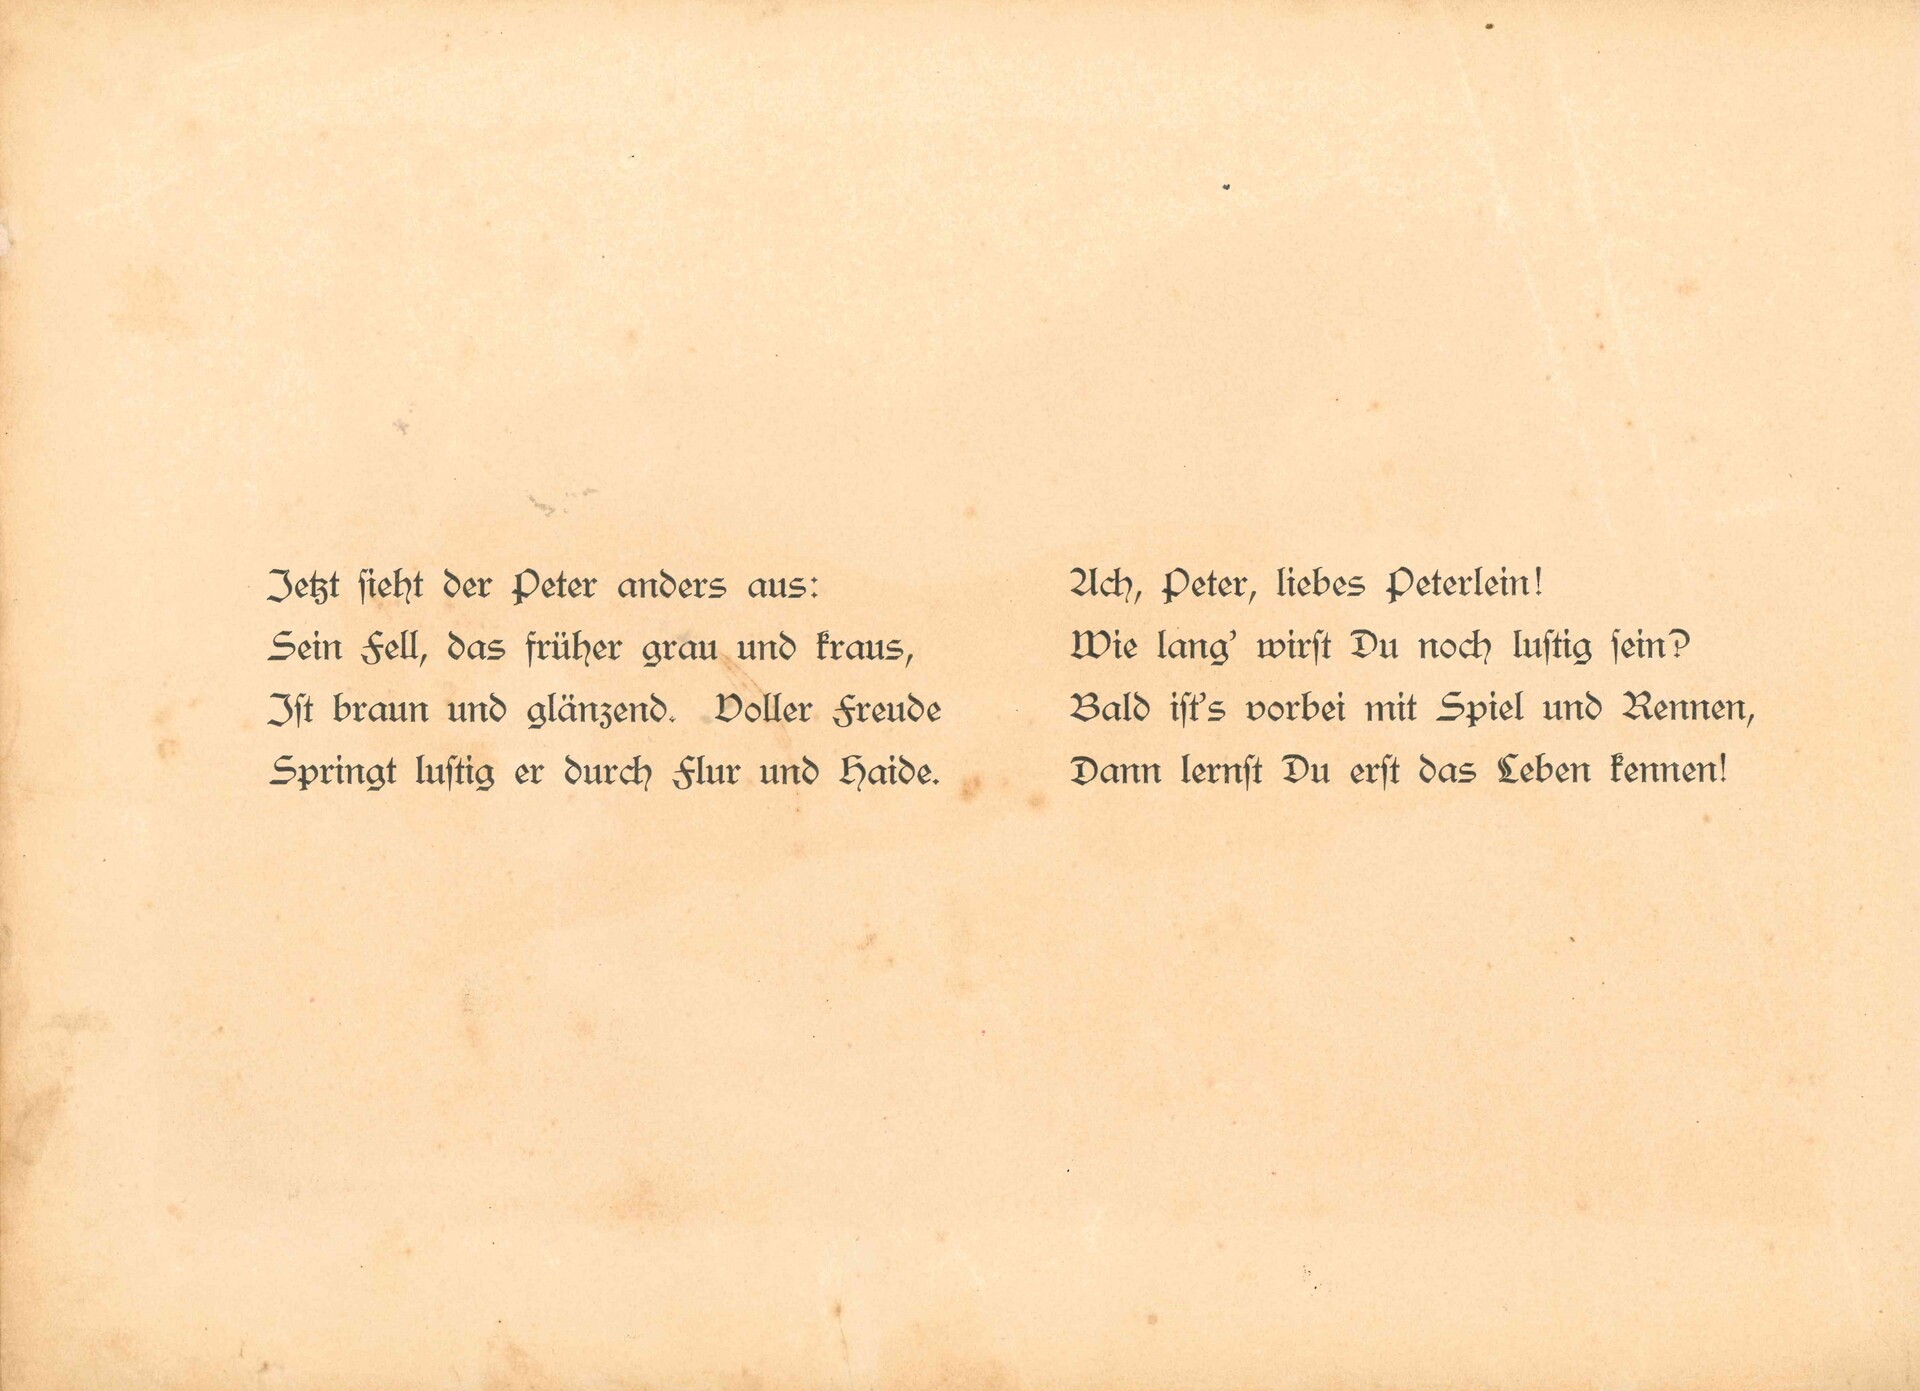 Jetzt sieht der Peter anders aus:
Sein Fell, das früher grau und kraus,
Ist braun und glänzend. Voller Freude
Springt lustig er durch Flur und Haide.
Ach, Peter, liebes Peterlein!
Wie lang' wirst Du noch lustig sein?
Bald ist's vorbei mit Spiel und Rennen,
Dann lernst Du erst das Leben kennen!